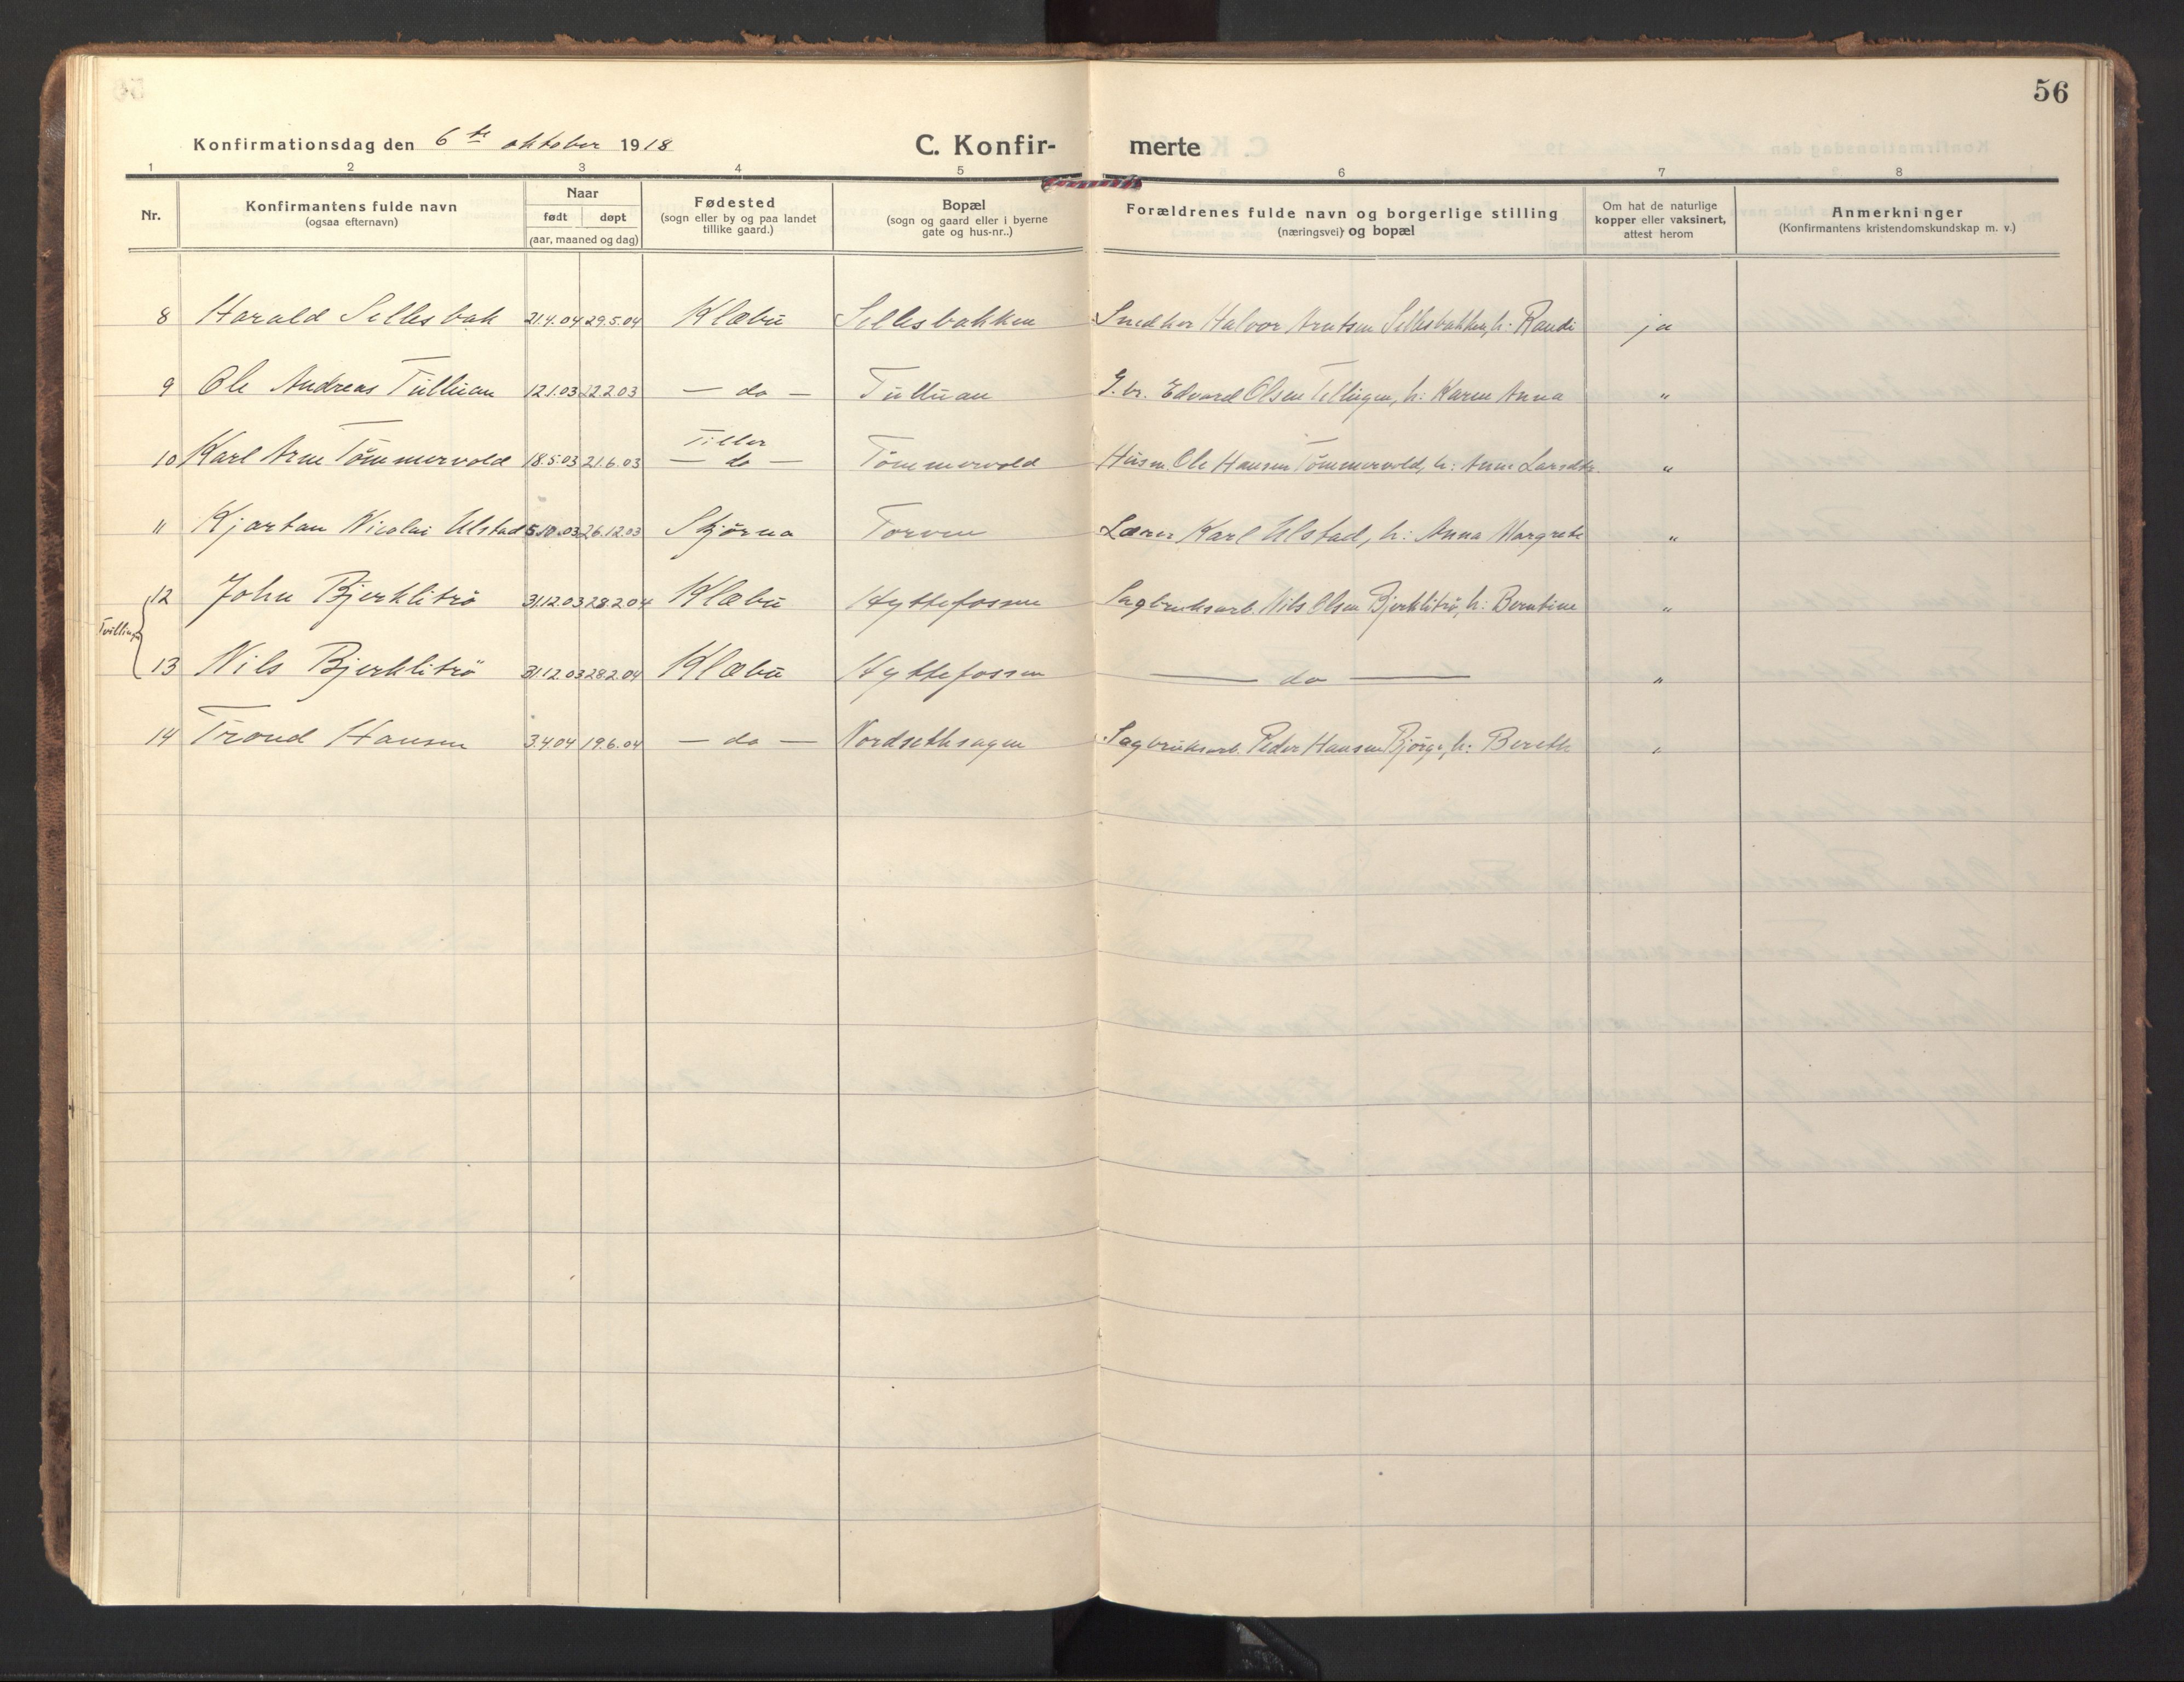 56
Konfirmationsdag den 6te oktober 1918
C. Konfir- merte
1 2 3 4 5 6 7 8
Nr.
Konfirmantens fulde navn
(ogsaa efternavn)
Naar
født døpt
(aar, maaned og dag)
Fødested
(sogn eller by og paa landet
tillike gaard.)
Bopæl
(sogn og gaard eller i byerne
gate og hus-nr..)
Forældrenes fulde navn og borgerlige stilling
(næringsvei) og bopæl
Om hat de naturlige
kopper eller vaksinert,
attest herom
Anmerkninger
(Konfirmantens kristendomskundskap m. v.)
8 Harald Sellesbak 21.4.04 29.5.04 Klæbu Sellesbakken Snedker Halvor Arntsen Sellesbakken, h: Randi ja
9 Ole Andreas Tulluan 12.1.03 22.2.03 — do — Tulluan G.br. Edvard Olsen Tellugen, h: Karen Anna "
Tiller
10 Karl Arne Tömmervold 18.5.03 21.6.03 — do — Tömmervold Husm. Ole Hansen Tömmervold, h: Anne Larsdtr. "
11 Kjartan Nicolai Ulstad 5.10.03 26.12.03 Stjørna Torven Lærer Karl Ulstad, h: Anna Margrete "
12 John Bjerklitrö 31.12.03 28.2.04 Klæbu Hyttefossen Sagbruksarb. Nils Olsen Bjerklitrö, h: Berntine "
Tvillinger
13 Nils Bjerklitrö 31.12.03 28.2.04 Klæbu Hyttefossen — do — "
14 Trond Hansen 3.4.04 19.6.04 — do — Nordsethsagen Sagbruksarb. Peder Hansen Bjørge, h: Bereth "